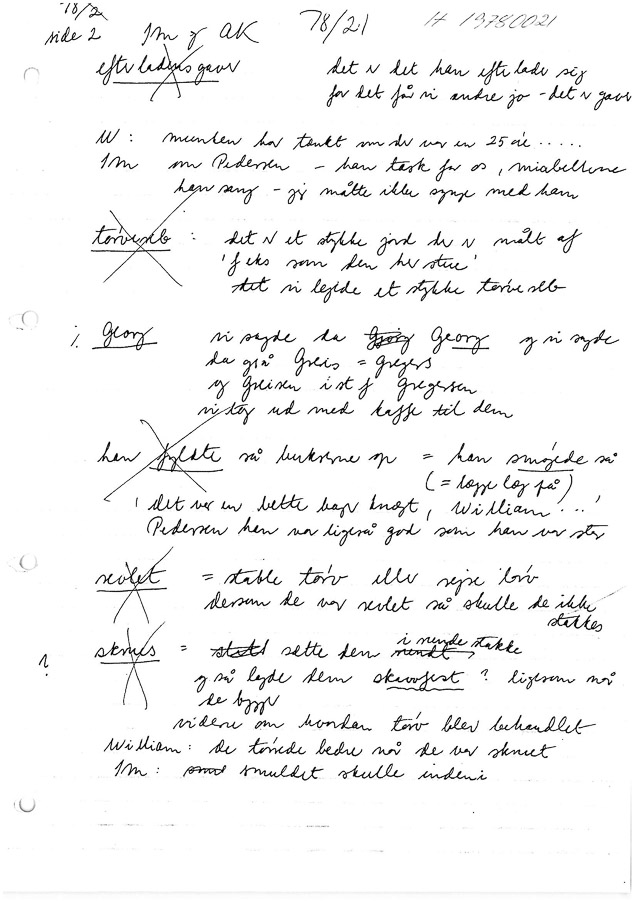 78/2
side 2 IM og AK 78/21 H 19780021
efterladensgaver det er det han efterlader sig
for det får vi andre jo - det er gaver
W: munken har tænkt om der var en 25 øre.....
IM om Pedersen - han tærsk for os, mirabellerne
han sang - jeg måtte ikke synge med ham
tørveseb : det er et stykke jord der er målt af
'f eks som den her stue'
det vi lejede et stykke tørveseb
Georg vi sagde da Georg og vi sagde
da også Greis = Gregers
og Greisen i st f Gregersen
vi tog ud med kaffe til dem
han fyldte så bukserne op = han smøjede så
(= lægge læg på)
'det var en bette bager knægt, William...'
Pedersen han var ligeså god som han var stor
revlet = stable tørv eller rejse tørv
dersom de var revlet så skulle de ikke
stakkes
? skrues = sætte dem i runde stakke
og så lagde dem skavvfest? ligesom når
de bygger
videre om hvordan tørv blev behandlet
William: de tørrede bedre når de var skruet
IM: smuldet skulle indeni